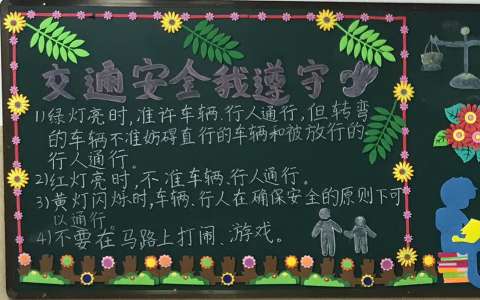 交通安全我遵守
1)绿灯亮时,准许车辆、行人通行,但转弯
的车辆不准妨碍直行的车辆和被放行的
行人通行。
2)红灯亮时,不准车辆、行人通行。
3)黄灯闪烁时,车辆、行人在确保安全的原则下可
以通行。
4)不要在马路上打闹、游戏。